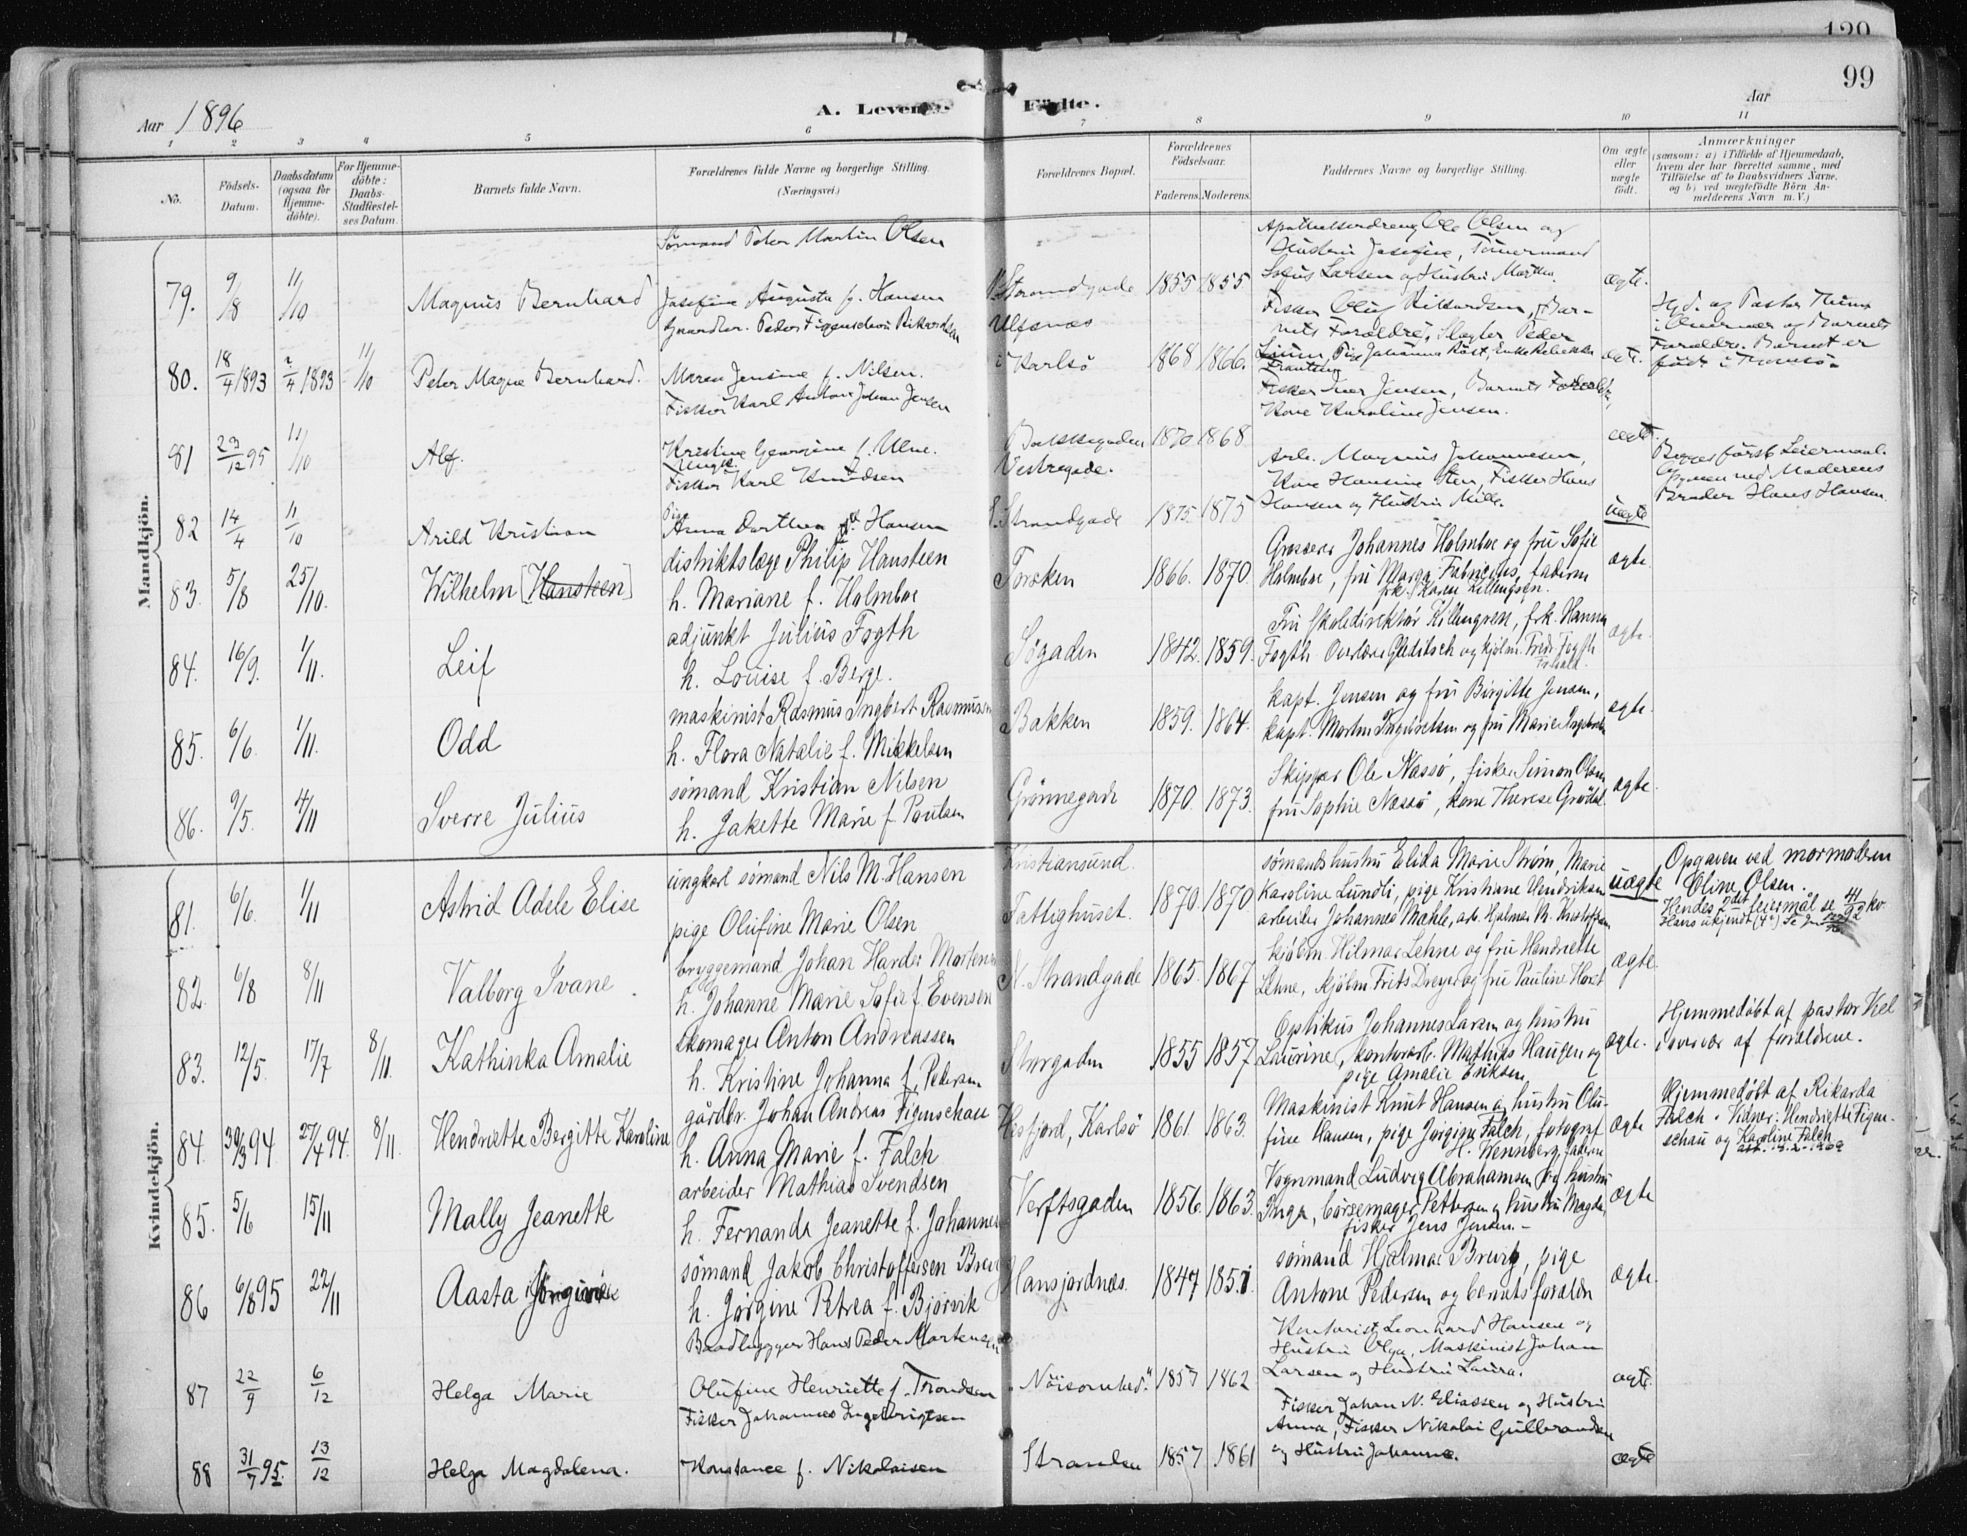 120
99
Aar 1896
A. Levende Fødte.
Aar
1 2 3 4 5 6 7 8 9 10 11
No.
Födsels-Datum.
Daabsdatum (ogsaa for Hjemme-döbte).
For Hjemme-döbte: Daabs-Stadfæstel-ses Datum.
Barnets fulde Navn.
Forældrenes fulde Navne og borgerlige Stilling. (Næringsvei.)
Forældrenes Bopæl.
Forældrenes Födselsaar.
Faderens. Moderens.
Faddernes Navne og borgerlige Stilling.
Om ægte eller uægte födt.
Anmærkninger
(saasom: a) i Tilfælde af Hjemmedaab, hvem der har forrettet samme, med Tilföielse af to Daabsvidners Navne. og b) ved uægtefödte Börn An-melderens Navn m. V.)
Mandkjön.
Sømand Peter Martin Olsen
Apothekerdreng Ole Olsen og
Hustru Josefine, Tømermand
79. 9/8 11/10 Magnus Bernhard Josefine Augusta f. Hansen Strandgade 1855 1855 Sofus Larsen og Hustru Marthe. ægte.
Gaardbr. Peder Figenschou Rikardsen Ulfsnæs
Fisker Oluf Rikardsen, Bar-
nets Forældre, Slagter Peder
80. 18/4 1893 2/4 1893 11/10 Peter Magne Bernhard. Maren Jensine f. Nilsen. i Karlsö 1868 1866. Pige Johanna Röst, Enke Rebekka ægte. Forældre. Barnet er
födt i Tromsö.
Fisker Karl Anton Johan Jensen
Fisker Iver Jensen, Barnets Forældre,
Kone Karoline Jensen.
81 23/12 95 11/10 Alf. Kristine Georgine f. Ulve. Bakkegaden 1870 1868 ægte.
Ungk. Fisker Karl Knudsen Vestregade.
Arb. Magnus Johannesen,
Kone Hansine Sten, Fisker Hans
Begges første Leiermaal.
Opgaven ved Moderens
Broder Hans Hansen.
82 14/4 11/10 Arild Kristian Pige Anna Dorthea Hansen Strandgade 1875. 1875 Hansen og Hustru Mille. uægte
83. 5/8 25/10. Wilhelm [Hansteen] distriktslæge Philip Hansteen
h. Mariane f. Holmboe Torsken 1866. 1870.
Grosserer Johannes Holmboe og fru Sofie
Holmboe, fru Marga Fabricius, faderen
frk. Karen Killengreen. ægte.
84. 16/9. 1/11. Leif adjunkt Julius Fogth
h. Louise f. Berge. Søgaden 1842. 1859.
Fru Skoledirektør Killengreen, frk. Hanna
Fogth. Overlærer Gleditsch og kjøbm. Fredr. Fogth ægte.
85. 6/6. 1/11. Odd maskinist Rasmus Ingbert Rasmussen
h. Flora Natalie f. Mikkelsen Bakken 1859. 1864.
kapt. Jensen og fru Birgitte Jensen,
kapt. Morten Ingebretsen og fru Marie Ingebretsen ægte.
86. 9/5. 4/11 Sverre Julius sømand Kristian Nilsen
h. Jakette Marie f. Paulsen Grønnegade 1870. 1873.
Skipper Ole Næssø, fisker Simon Olsen
fru Sophie Næssø, kone Therese Grødal. ægte.
Kvindekjön.
81. 6/6. 1/11 Astrid Adele Elise ungkarl sømand Nils M. Hansen Kristiansund.
pige Olufine Marie Olsen Fattighuset. 1870. 1870.
sømands hustru Elida Marie Strøm, Marie
Karoline Lundli, pige Kristiane Hendriksen
arbeider Johannes Mæhle, arb. Hjalmar M. Kristoffersen uægte
Opgaven ved mormoderen
Oline Olsen.
Hendes 2det leiermål se 41/92 kv.
82. 6/8 8/11 Valborg Ivane bryggemand Johan Harder Mortensen
h. Johanne Marie Sofie f. Evensen N. Strandgade 1865. 1867
kjøbm. Hilmar Lehne og fru Hendriette
Lehne, kjøbm Frits Dreyer og fru Pauline Horst ægte.
83. 12/5. 17/7 8/11. Kathinka Amalie skomager Anton Andreassen
h. Kristine Johanna f. Pedersen Storgaden 1855 1857.
Optikus Johannes Larsen og hustru
Laurine, kontorarb. Mathias Haugen og
pige Amalie Eriksen ægte.
Hjemmedøbt af pastor Kiel
i overvær af forældrene.
84. 30/3 94 27/4 94. 8/11. Hendriette Bergitte Karoline gårdbr. Johan Andreas Figenschau
h. Anna Marie f. Falch Hesfjord, Karlsø 1861 1863.
Maskinist Knut Hansen og hustru Olu-
fine Hansen, pige Jørgine Falch, fotograf
H. Wennberg, faderen ægte
Hjemmedøbt af Rikarda
Falch. Vidner: Hendriette Figen-
schau og Karoline Falch
85. 5/6 15/11 Mally Jeanette arbeider Mathias Svendsen
h. Fernanda Jeanette f. Johannes Verftsgaden 1856. 1863.
Vognmand Ludvig Abrahamsen og hustru
Inga, børsemager Pettersen og hustru Magda,
fisker Jens Jensen. ægte
86 6/8 95 22/11 Aasta Jørgine sømand Jakob Christoffersen Brevig
h. Jørgine Petrea f. Bjørvik Hansjordnæs. 1847 1851.
sømand Hjalmar Brevig, pige
Antone Pedersen og barnets forældre ægte.
Baadbygger Hans Peder Mortensen
Kontorist Leonhard Hansen og
Hustru Olga, Maskinist Johan
87 22/9 6/12 Helga Marie Olufine Henriette f. Trondsen "Nöisomhed" 1857 1862 Larsen og Hustru Laura. ægte.
Fisker Johannes Ingebrigtsen
Fisker Johan N. Eliassen og Hustru
Anna, Fisker Nikolai Gulbrandsen
88 31/7 95. 13/12 Helga Magdalena. Konstance f. Nikolaisen Stranden 1857 1861 og Hustru Johanne. ægte